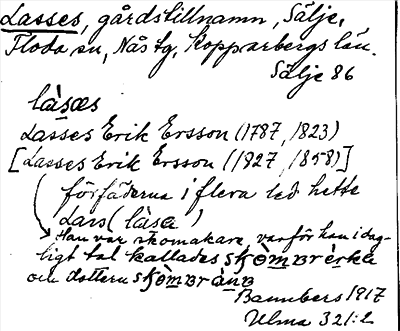 Lasses, gårdstillnamn, Sälje,
Floda sn, Nås tg, Kopparbergs län.
Sälje 86
làsæs
Lasses Erik Ersson (1787, 1823)
[Lasses Erik Ersson (1827, 1858)]
(förfäderna i flera led hette
Lars (làsa)
Han var skomakare, varför han i dag-
ligt tal kallades
och dottern
Bannbers 1917
Ulma 321:2